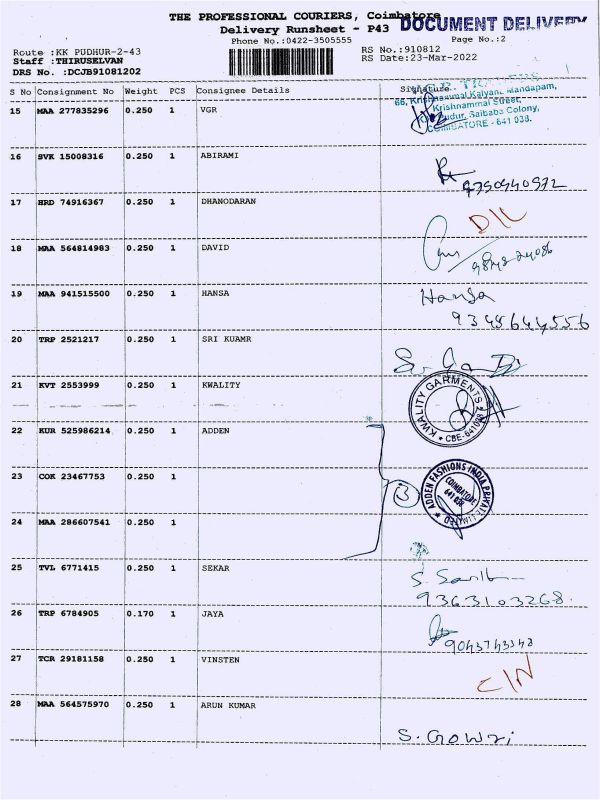 THE PROFESSIONAL COURIERS, Coimbatore
DOCUMENT DELIVERY
Delivery Runsheet - P43
Phone No.:0422-3505555
Page No.:2
Route :KK PUDHUR-2-43
RS No.:910812
Staff :THIRUSELVAN
RS Date:23-Mar-2022
DRS No. :DCJB91081202
S No Consignment No Weight PCS Consignee Details Signature
66, Krishnammal Kalyana Mandapam,
Krishnammal Street,
Pudur, Saibaba Colony,
COIMBATORE - 641 038.
15 MAA 277835296 0.250 1 VGR
16 SVK 15008316 0.250 1 ABIRAMI
9750940572
17 HRD 74916367 0.250 1 DHANODARAN
D/L
18 MAA 564814983 0.250 1 DAVID
19 MAA 941515500 0.250 1 HANSA Hansa
9345644556
20 TRP 2521217 0.250 1 SRI KUAMR
21 KVT 2553999 0.250 1 KWALITY
KWALITY GARMENTS
CBE-641038
22 KUR 525986214 0.250 1 ADDEN
23 COK 23467753 0.250 1
3
ADDEN FASHIONS INDIA PRIVATE LIMITED
COIMBATORE
641 038
24 MAA 286607541 0.250 1
25 TVL 6771415 0.250 1 SEKAR
9363103268
26 TRP 6784905 0.170 1 JAYA
9043743348
27 TCR 29181158 0.250 1 VINSTEN
28 MAA 564575970 0.250 1 ARUN KUMAR
S. Gowri